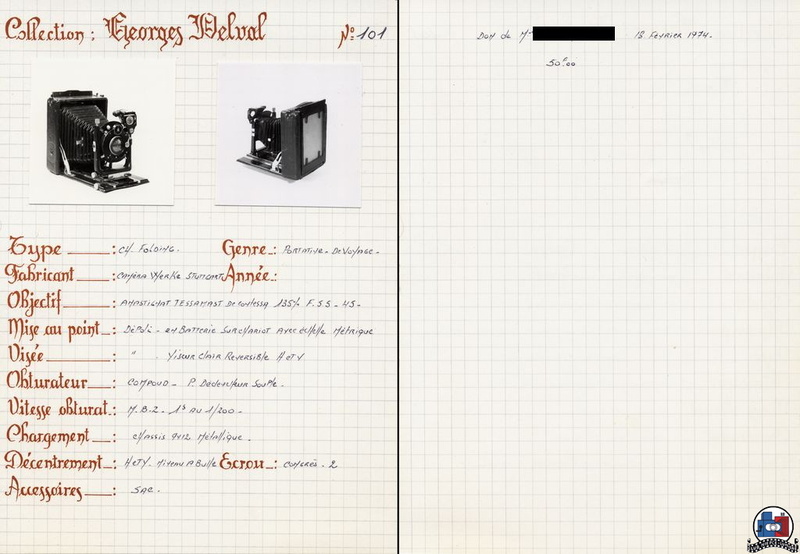 Collection : Georges Delval
Nº 101
Type : CH. FOLDING.
Genre : PORTATIVE - DE VOYAGE -
Fabricant : CAMÉRA WERKE STUTTGART
Année :
Objectif : ANASTIGMAT TESSAMAST DE CONTESSA 135% F. 5.5 - 4.5 -
Mise au point : DÉPOLI - EN BATTERIE SUR CHARIOT AVEC ÉCHELLE MÉTRIQUE
Visée : " . VISEUR CLAIR REVERSIBLE H ET V
Obturateur : COMPOUD - P. DÉCLENCHEUR SOUPLE -
Vitesse obturat. : M. B. Z - 1S AU 1/200 -
Chargement : CHASSIS 9X12 MÉTALLIQUE -
Décentrement : H ET V. NIVEAU A BULLE
Ecrou : CONGRÈS . 2
Accessoires : SAC -
DON DE M
18 FÉVRIER 1974.
50F00